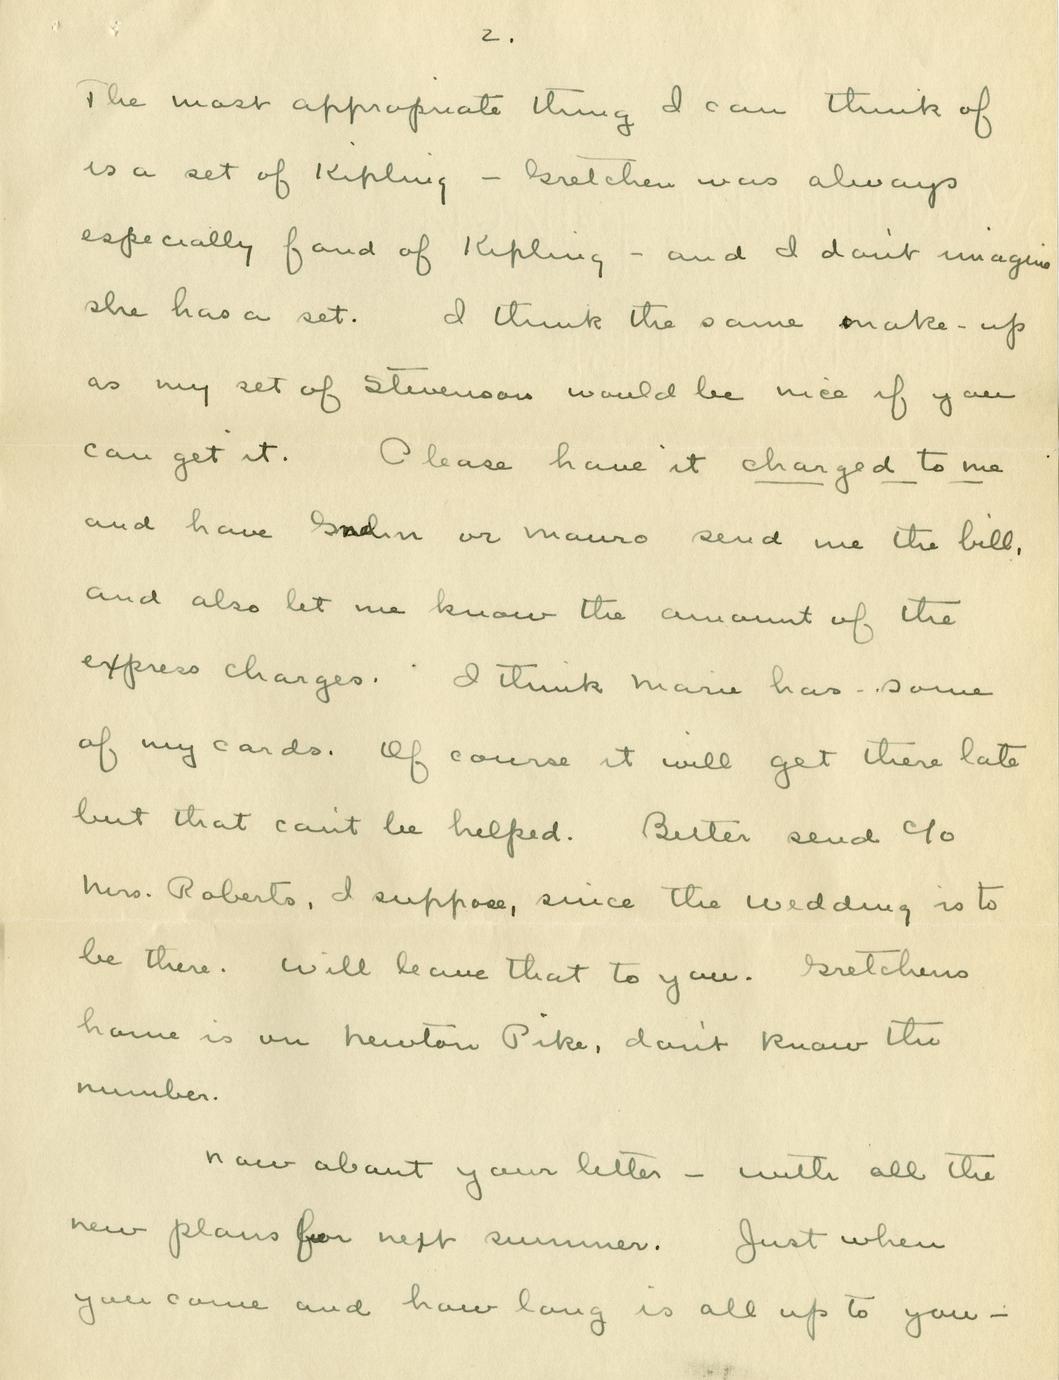 2.
The most appropriate thing I can think of
is a set of Kipling – Gretchen was always
especially fond of Kipling – and I don't imagine
she has a set. I think the same make-up
as my set of Stevenson would be nice if you
can get it. Please have it charged to me
and have or Mauro send me the bill,
and also let me know the amount of the
express charges. I think Marie has some
of my cards. Of course it will get there late
but that can't be helped. Better send c/o
Mrs. Roberts, I suppose, since the wedding is to
be there. Will leave that to you. Gretchens
home is on Newton Pike, don't know the
number.
Now about your letter – with all the
new plans for next summer. Just when
you come and how long is all up to you –